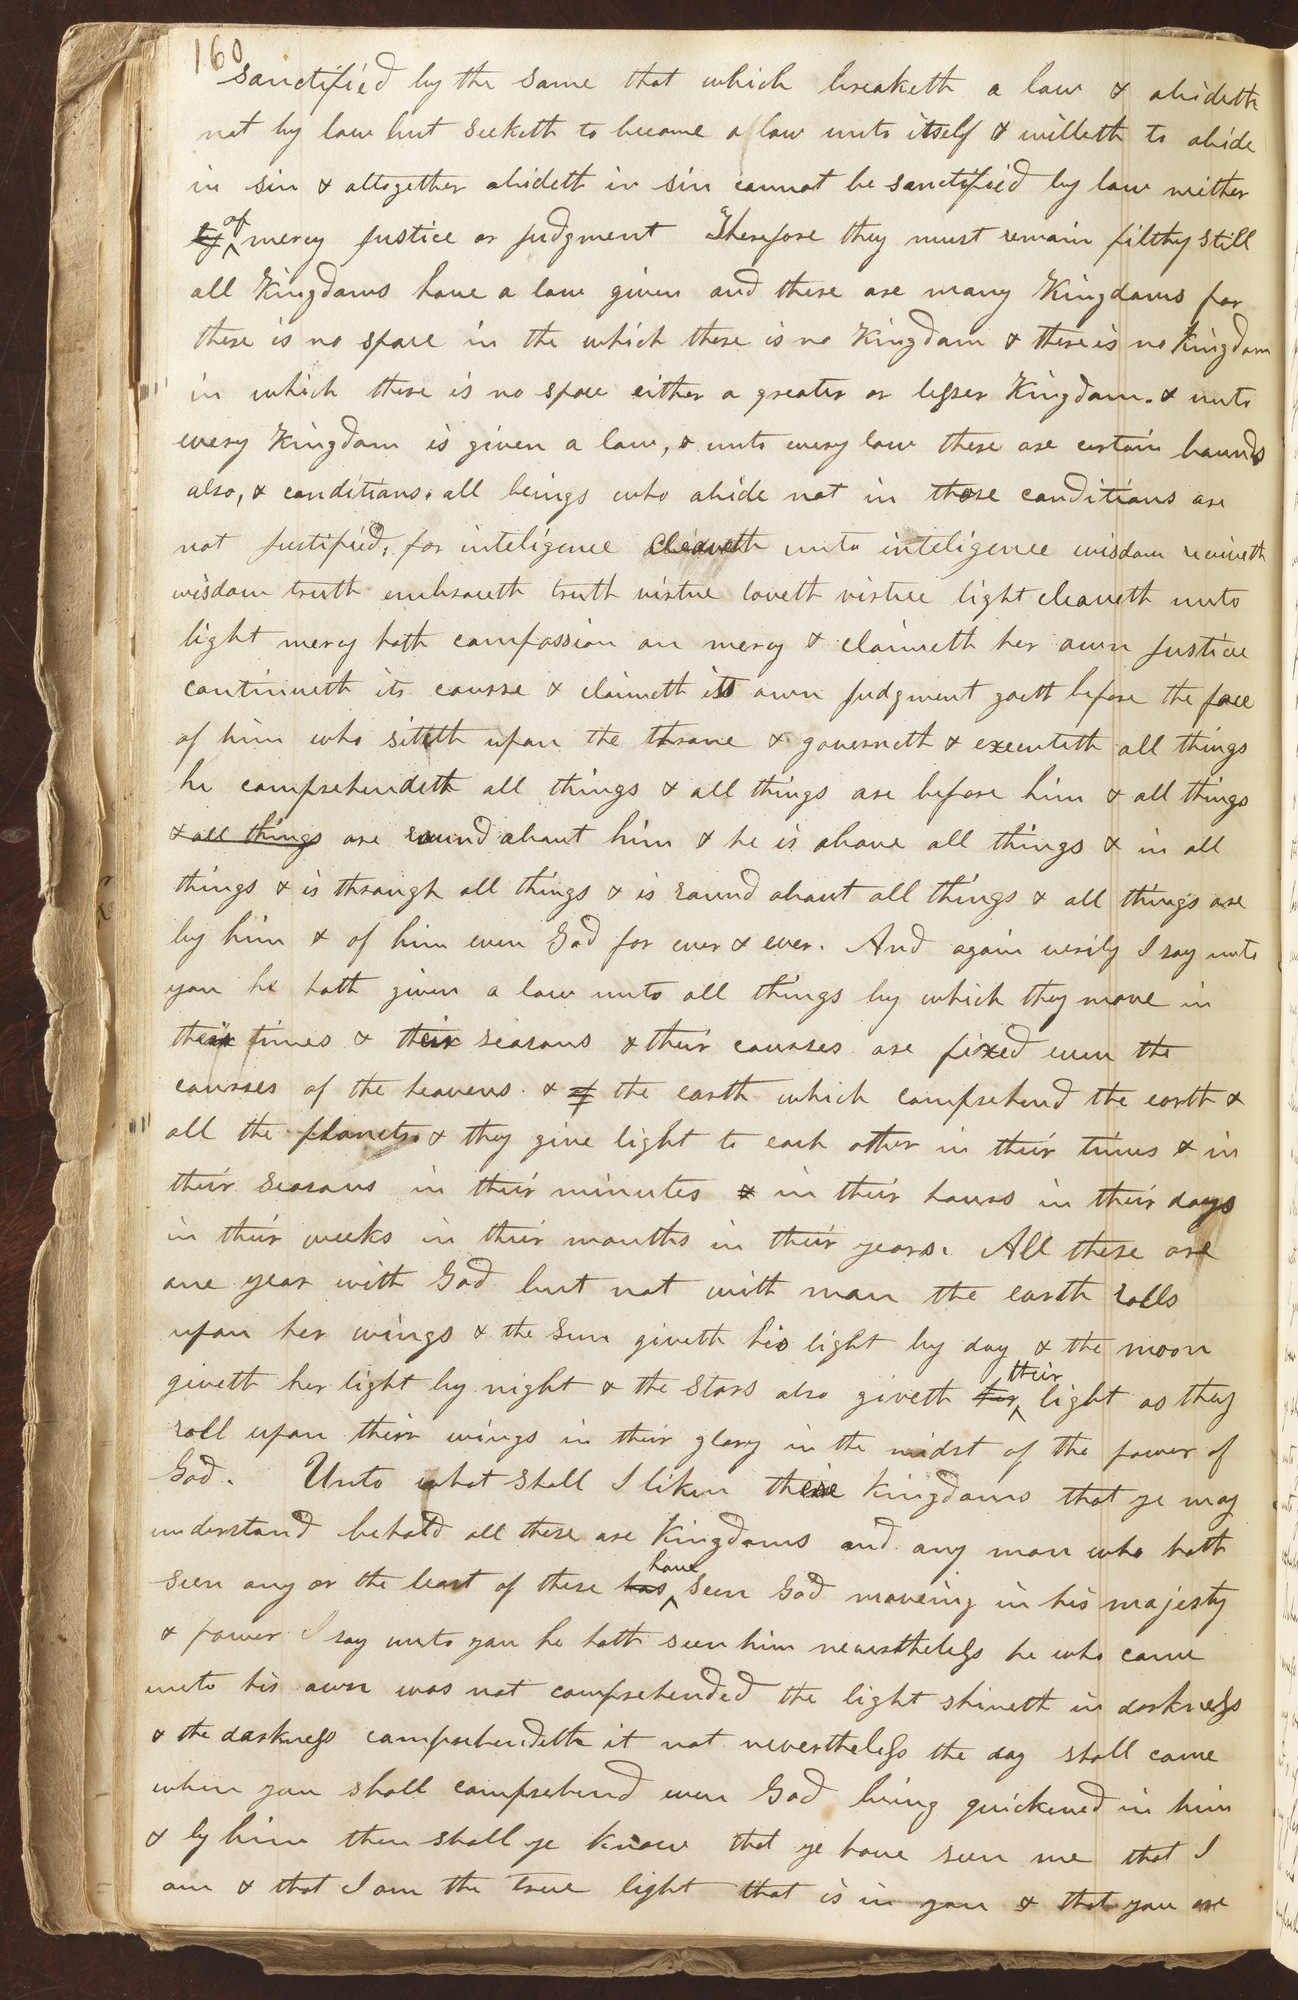 160
sanctified by the same that which breaketh a law & abideth
not by law but seeketh to become a law unto itself & willeth to abide
in sin & altogether abideth in sin cannot be sanctified by law neither
by of mercy justice or judgment Therefore they must remain filthy still
all Kingdoms have a law given and there are many Kingdoms for
there is no space in the which there is no Kingdom & there is no Kingdom
in which there is no space either a greater or lesser Kingdom. & unto
every Kingdom is given a law, & unto every law there are certain bounds
also, & conditions. all beings who abide not in those conditions are
not justified, for inteligence cleaveth unto inteligence wisdom receiveth
wisdom truth embraceth truth virtue loveth virtue light cleaveth unto
light mercy hath compassion on mercy & claimeth her own justice
continueth its course & claimeth its own judgment goeth before the face
of him who sitteth upon the throne & governeth & executeth all things
he comprehendeth all things & all things are before him & all things
& all things are round about him & he is above all things & in all
things & is through all things & is round about all things & all things are
by him & of him even God for ever & ever. And again verily I say unto
you he hath given a law unto all things by which they move in
their times & their seasons & their courses are fixed even the
courses of the heavens & of the earth which comprehend the earth &
all the planets & they give light to each other in their times & in
their seasons in their minutes & in their hours in their days
in their weeks in their months in their years. All these are
one year with God but not with man the earth rolls
upon her wings & the Sun giveth his light by day & the moon
giveth her light by night & the stars also giveth her their light as they
roll upon their wings in their glory in the midst of the power of
God. Unto what shall I liken these kingdoms that ye may
understand behold all these are Kingdoms and any man who hath
seen any or the least of these has have seen God moveing in his majesty
& power I say unto you he hath seen him nevertheless he who came
unto his own was not comprehended the light shineth in darkness
& the darkness comprehendeth it not nevertheless the day shall come
when you shall comprehend even God being quickened in him
& by him then shall ye know that ye have seen me that I
am & that I am the true light that is in you & that you are